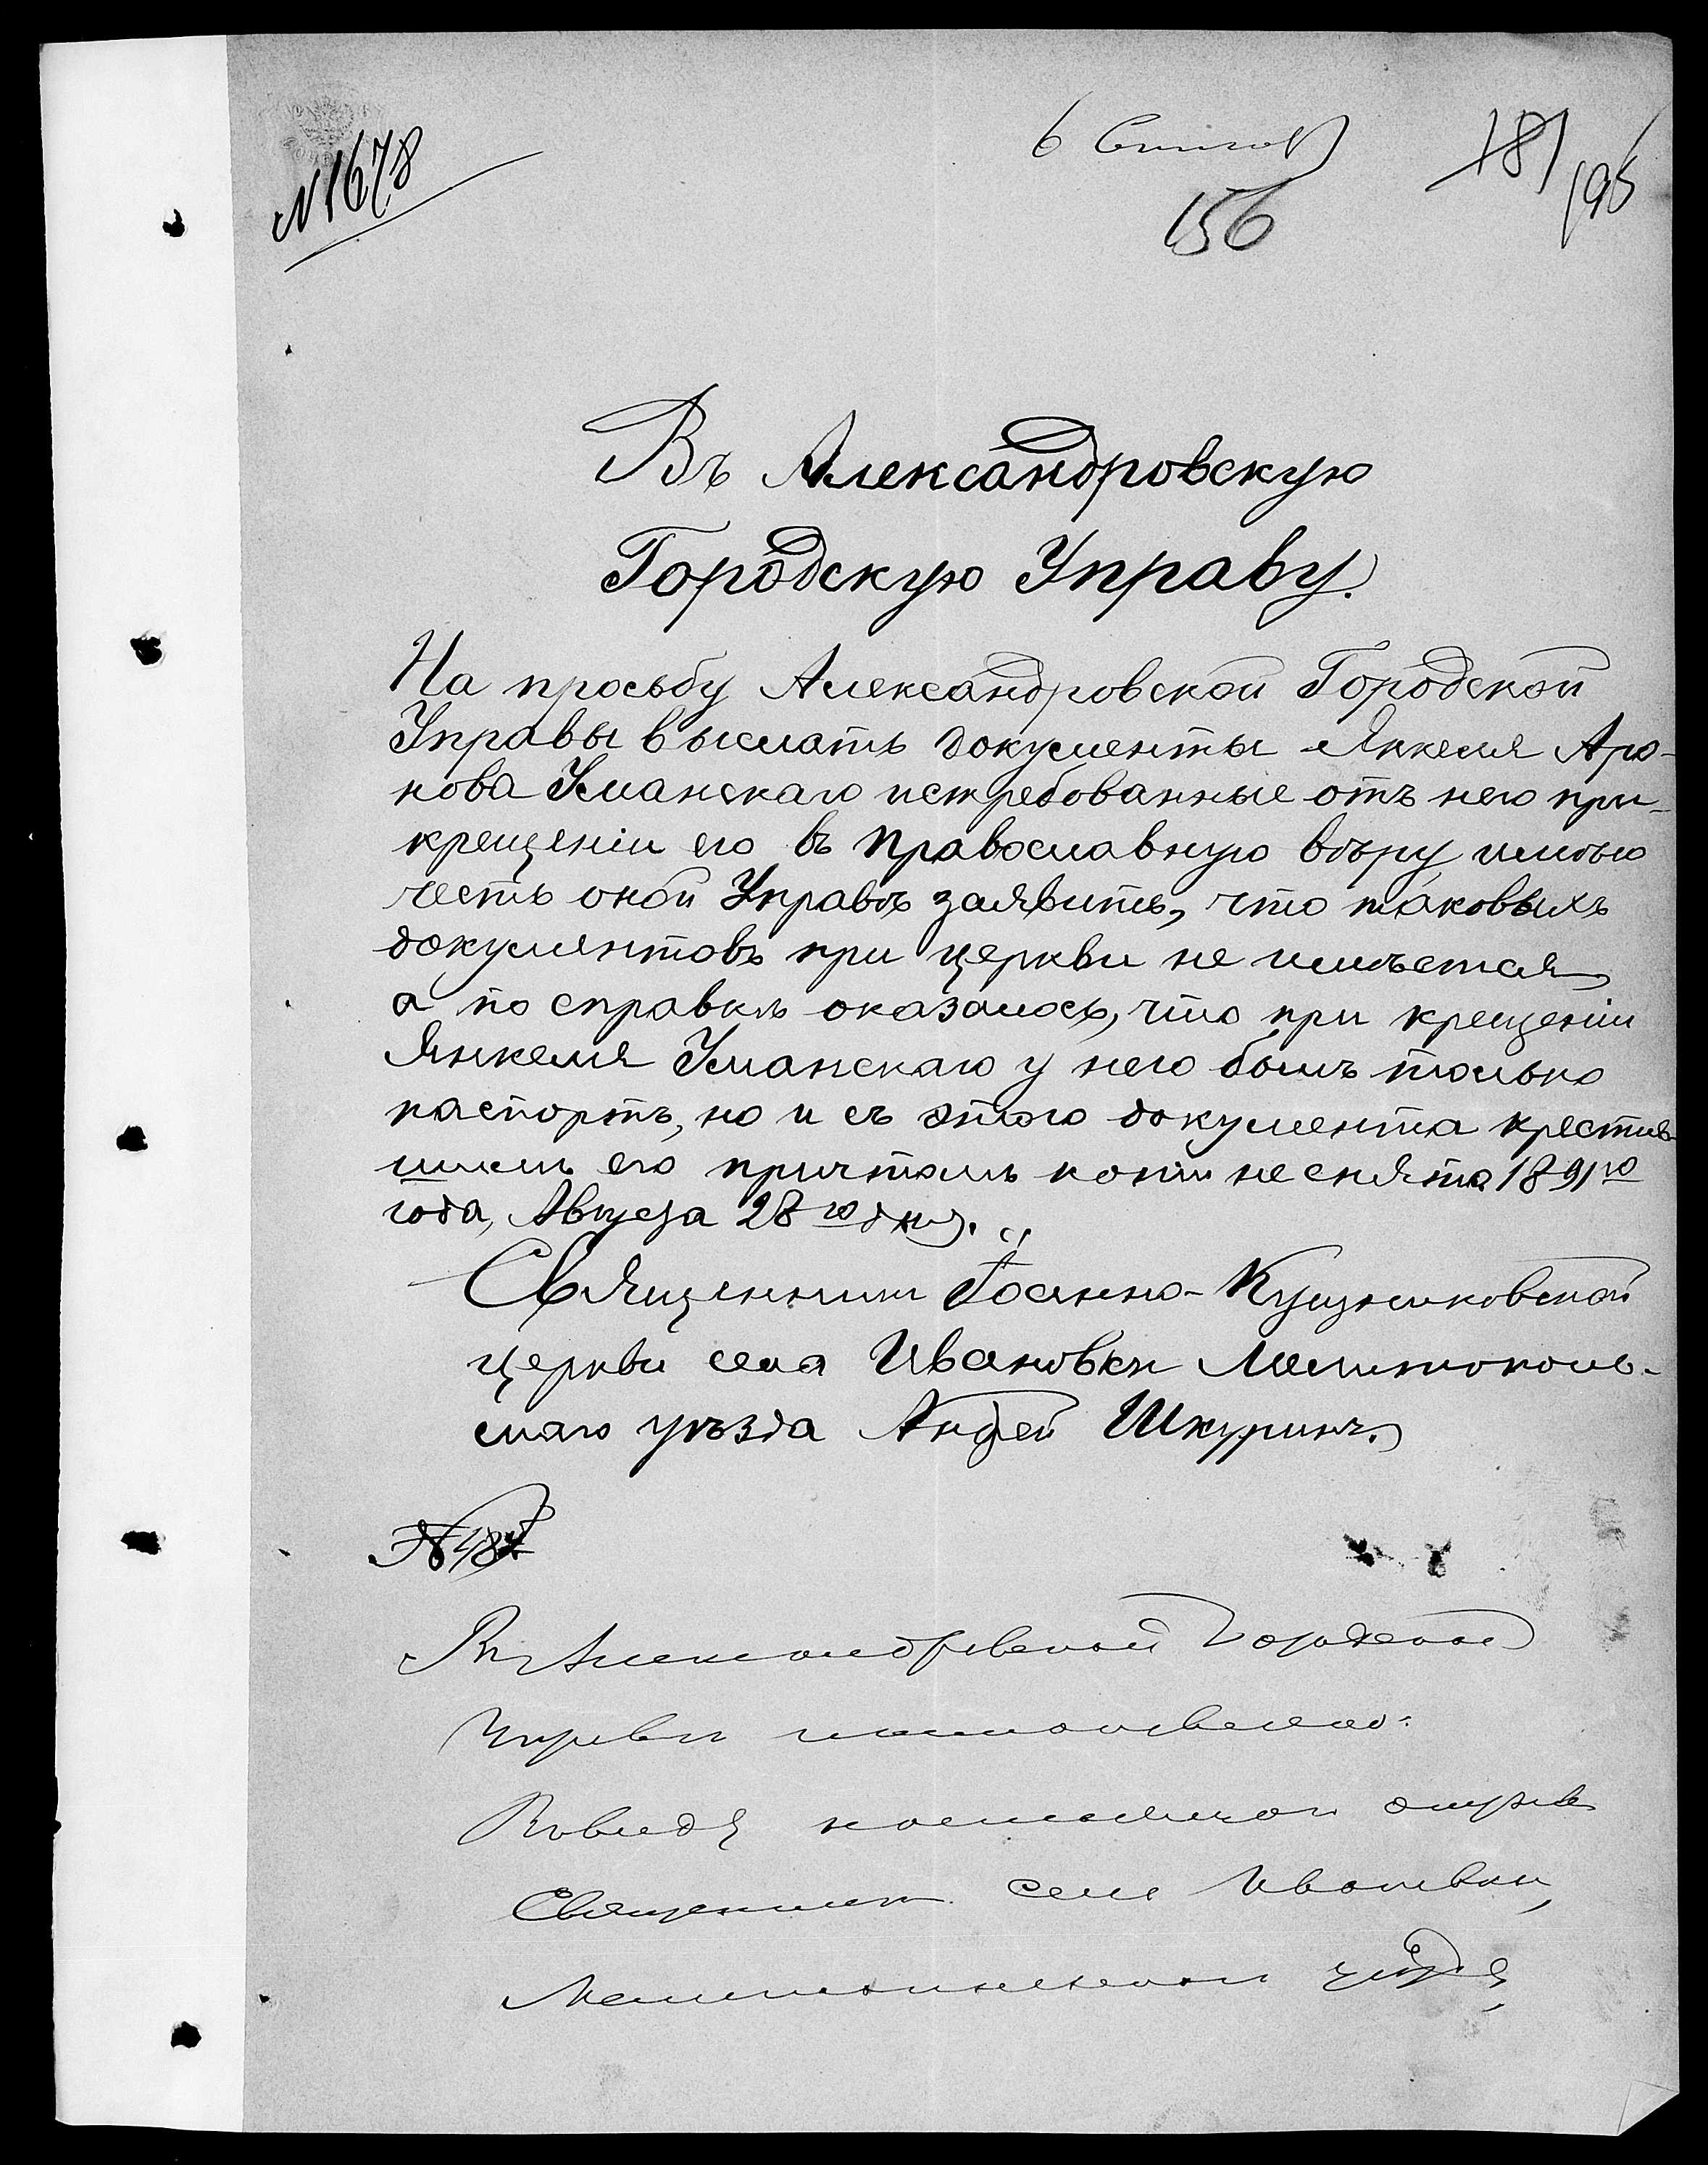 № 1678
6 Сентяб
181
196
156
Въ Александровскую
Городскую Управу.
На просьбу Александровской Городской
Управы выслать документы Янкеля Аро-
нова Уманскаго истребованные отъ него при
крещеніи его въ Православную вѣру имѣю
честь оной Управѣ заявить, что таковыхъ
документовъ при церкви не имѣется,
а по справкѣ оказалось, что при крещеніи
Янкеля Уманскаго у него былъ только
паспортъ, но и съ этого документа крестив-
шимъ его причтомъ копіи не снято. 1891го
года, Августа 28го дня.
Священникъ Іоанно-
церкви села Ивановки Мелитополь-
скаго уѣзда Андрей Шкуринъ.
№ 187
Въ Александровской Городской
Управы
Ввиду
Священник села Ивановки,
уѣзда,